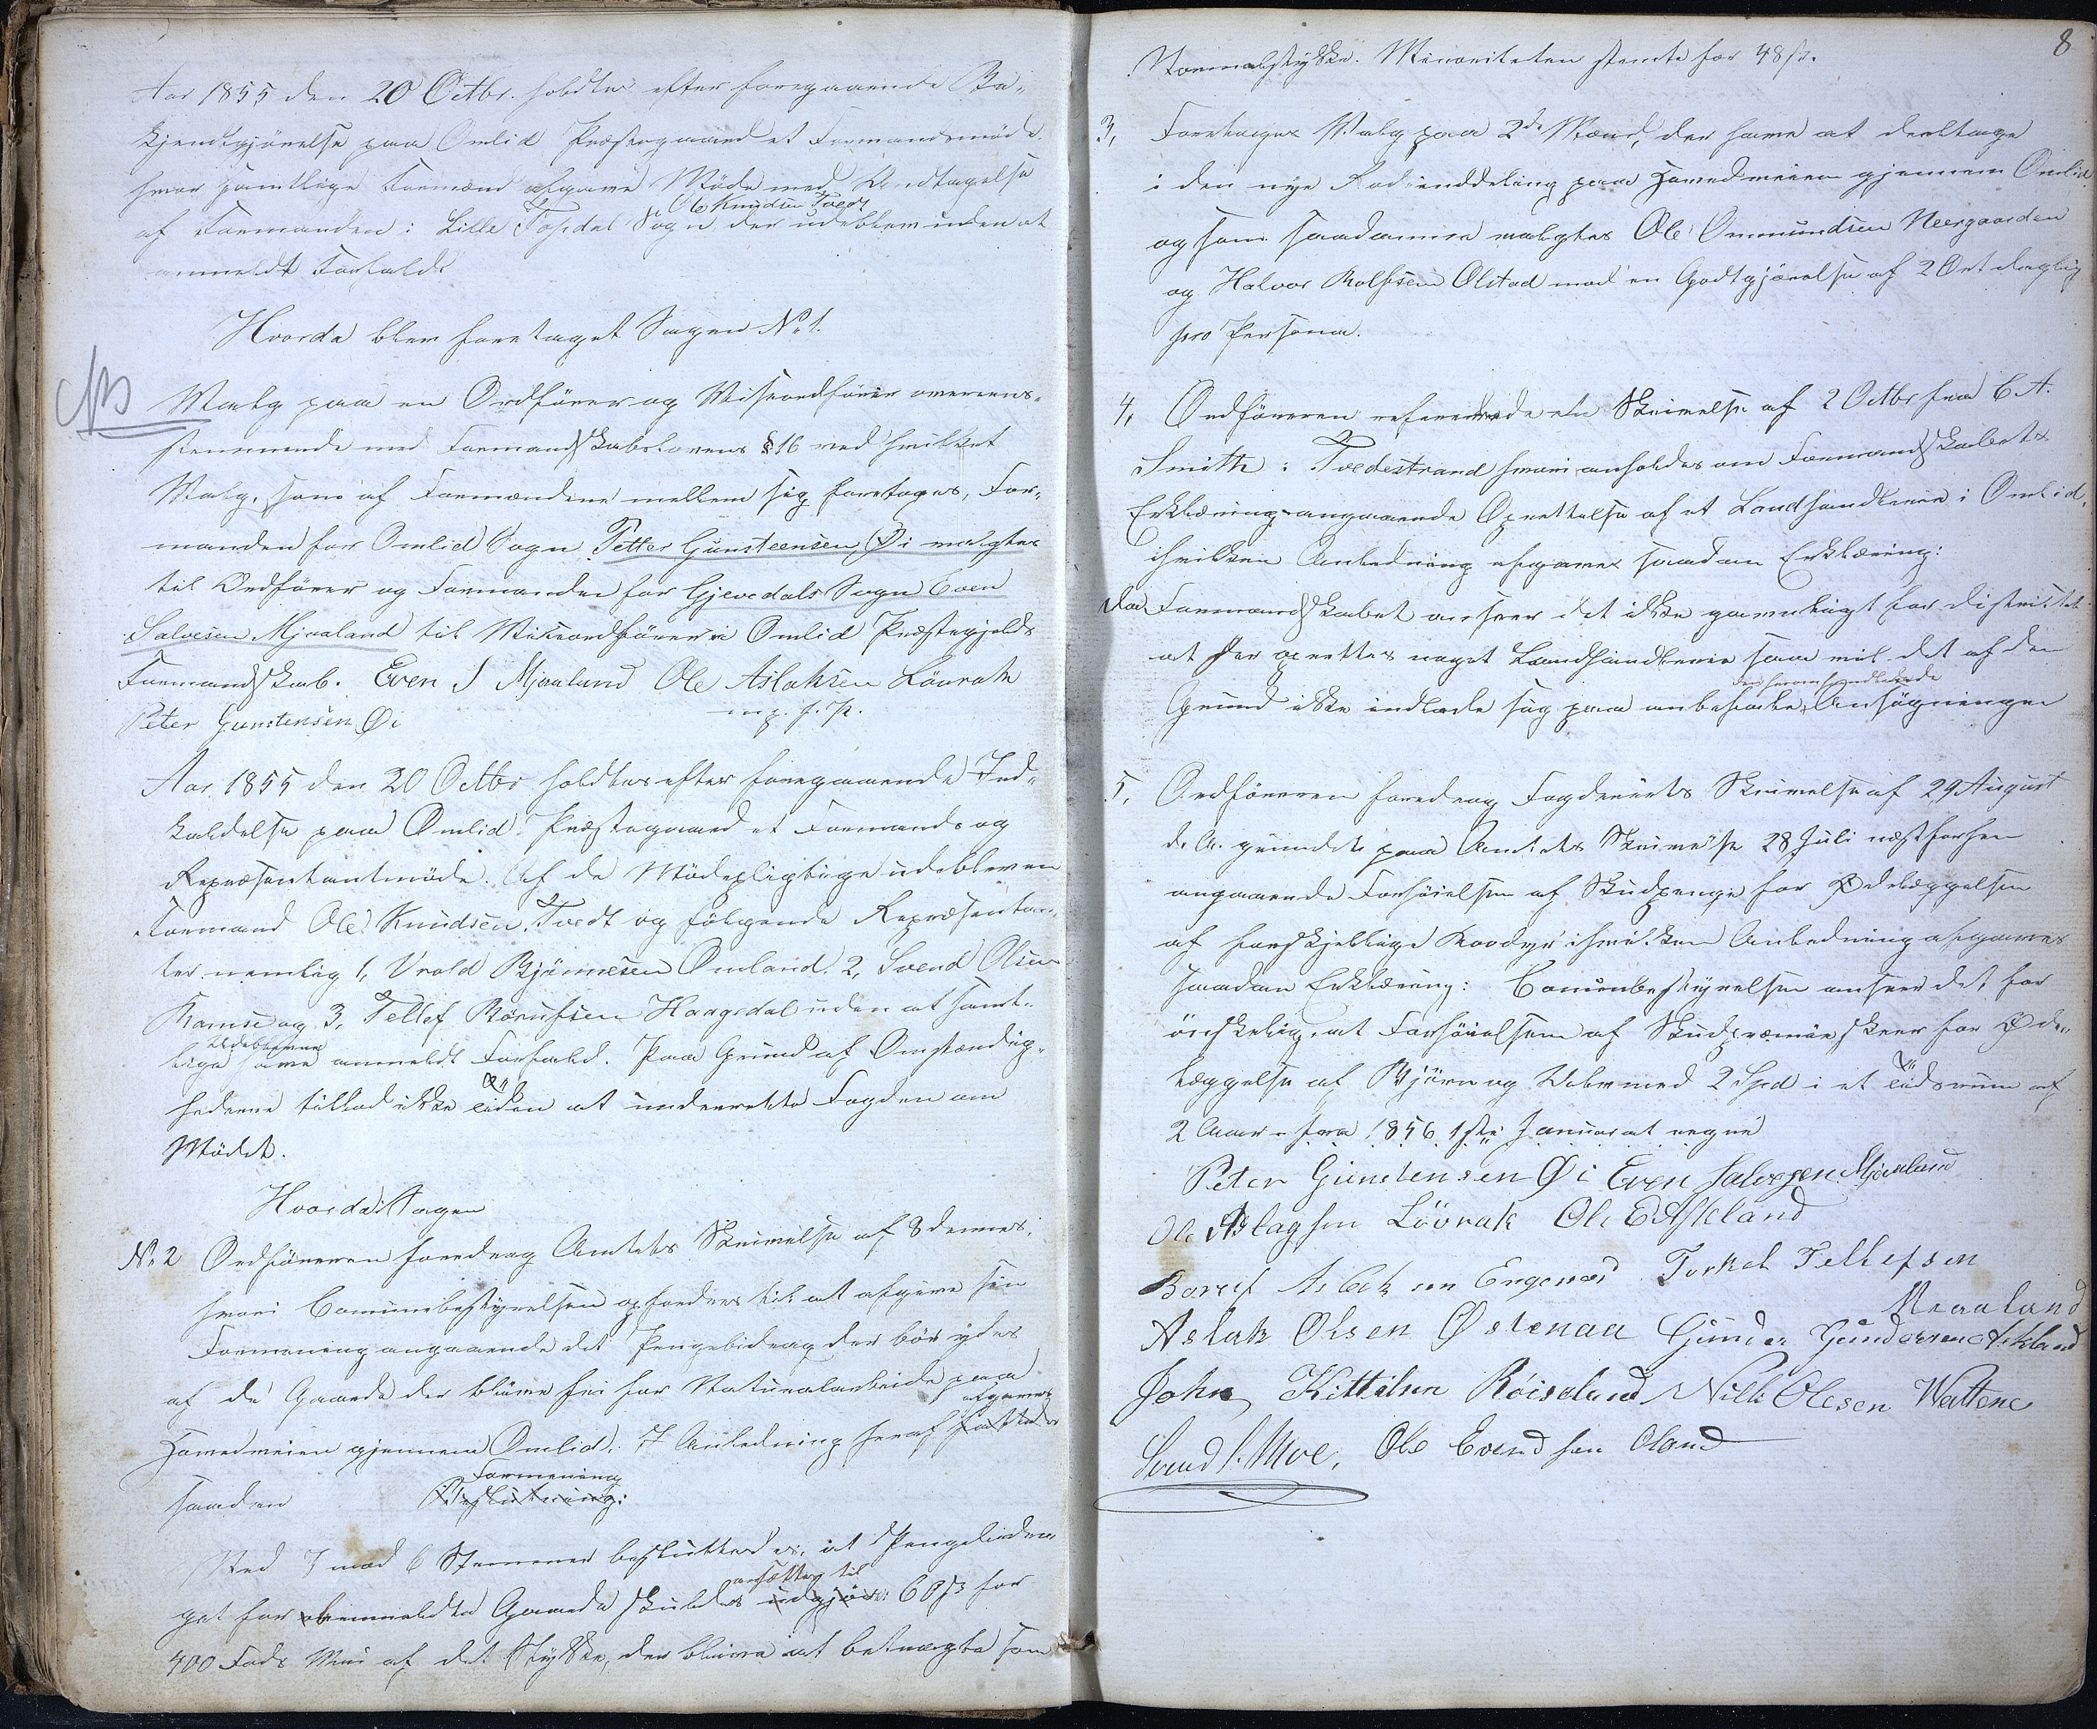 Aar 1855 den 20 Octbr. holdtes efter foregaaende Be-
kjendtgjörelse paa Omlid Præstegaard et Formandsmöde
hvor samtlige Formænd afgave Möde med Undtagelse
Ole Knudsen Tvedt
af Formanden i Lille Topdal Sogn der udeblev uden at
anmeldt Forfald.
Hvorda blev foretaget Sagen No 1.
NB
Valg paa en Ordförer og Viseordförer overeens-
stemmende med Formandskabslovens § 16 ved hvilket
Valg, som af Formændene mellem sig foretoges, For-
manden for Omlid Sogn Petter Gunsteensen Øi valgtes
til Ordförer og Formanden for Gjevedals Sogn Even
Salvesen Mjaaland til Viseordförer i Omlid Præstegjelds
Formandskab. Even S Mjaaland Ole Aslaksen Lövrak
m. p. f. P.
Peter Gunstensen Øi
Aar 1855 den 20 Octbr holdtes efter foregaaende Ind-
kaldelse paa Omlid Præstegaard et Formands og
Repræsentantmöde. Af de Mödepligtige udebleven
Formand Ole Knudsen Tvedt og fölgende Repræsentan-
ter nemlig 1, Vrold Björnnesen Omland. 2, Svend Olsen
Ramse og 3, Tellef Börufsen Haugsdal uden at samt-
Udeblevne
lige have anmeldt Forfald. Paa Grund af Omstændig-
hederne tillod ikke Tiden at underrette Fogden om
Mödet.
Hvorda Sagen
No 2 Ordföreren foredrog Amtets Skrivelse af 8 dennes
hvori Comunebestyrelsen opfordres til at afgive sin
Formening angaaende det Pengebidrag der bör ydes
af de Gaarde der blive fri for Naturalarbeide paa
afgaves
Hovedveien gjennem Omlid. I Anledning heraf fattedes
Formening
saadan Beslutning:
Ved 7 mod 6 Stemmer besluttedes, at Pengebidra-
ansættes til
get for ommeldte Gaarde skulde udgjöre 60 ß for
400 Fods Vei af det Stykke, der bliver at betragte som
8
Normalstykke. Minoriteten stemte for 48 ß.
3, Foretoges Valg paa 2de Mænd, der have at deeltage
i den nye Rodeinddeling paa Hovedveien gjennem Omlid
og som saadanne valgtes Ole Ommundsen Neergaarden
og Halvor Rolfsen Olstad mod en Godtgjörelse af 2 Ort daglig
pro Persona.
4, Ordföreren refererede en Skrivelse af 2 Octbr fra C. A.
Smith i Tvedestrand hvori anholdes om Formandskabets
Erklæring angaaende Oprettelse af et Landhandlerie i Omlid,
i hvilken Anledning afgaves saadan Erklæring:
Da Formandskabet anseer det ikke gavnligt for Distriktet
at der oprettes noget Landhandlerie saa vil det af den
den herom handlende
Grund ikke indlade sig paa anbefale Ansögningen
5, Ordföreren foredrog Fogderiets Skrivelse af 29 August
d. A. grundet paa Amtets Skrivelse 28 Juli næstforhen
angaaende Forhöielsen af Skudpenge for Ødelæggelsen
af forskjellige Rovdyr i hvilken Anledning afgaves
saadan Erklæring: Comunbestyrelsen anseer det for
önskeligt at Forhöielsen af Skudpræmier skeer for Øde-
læggelse af Björn og Ulv med 2 Spd i et Tidsrum af
2 Aar fra 1856 1ste Januar at regne
Peter Gunstensen Øi Even Salvesen Mjaaland
Ole Aslagsen Lövrak Ole E Askland
Boruf Aslaksen Engenes Torkel Tellefsen
Mraaland
Aslak Olsen Østenaa Gunder Gundersen Askland
John Kittilsen Röiseland Nils Olesen Wattene
Svend S. Moe, Ole Evendsen Oland